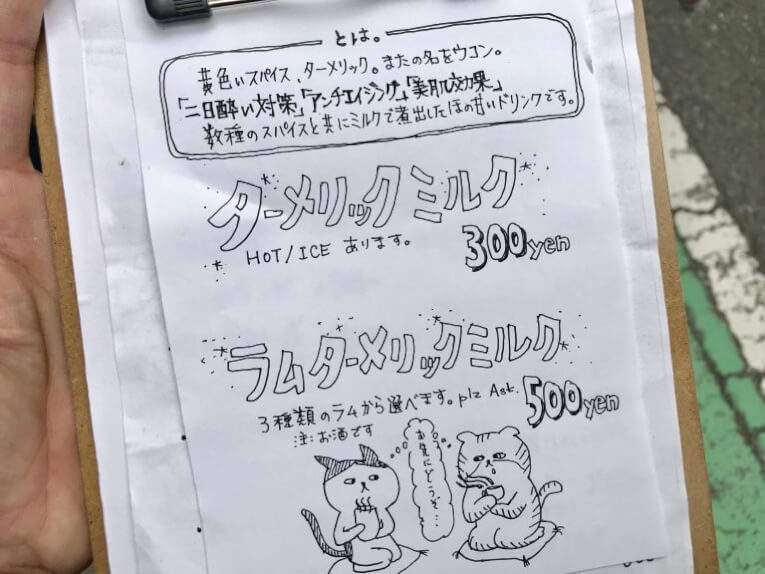 とは。
黄色いスパイス、ターメリック。またの名をウコン。
「二日酔い対策」「アンチエイジング」「美肌効果」
数種のスパイスと共にミルクで煮出したほの甘いドリンクです。
ターメリックミルク
HOT/ICE あります。
300yen
ラムターメリックミルク
3種類のラムから選べます。plz Ask.
500yen
注:お酒です
お先にどうぞ…